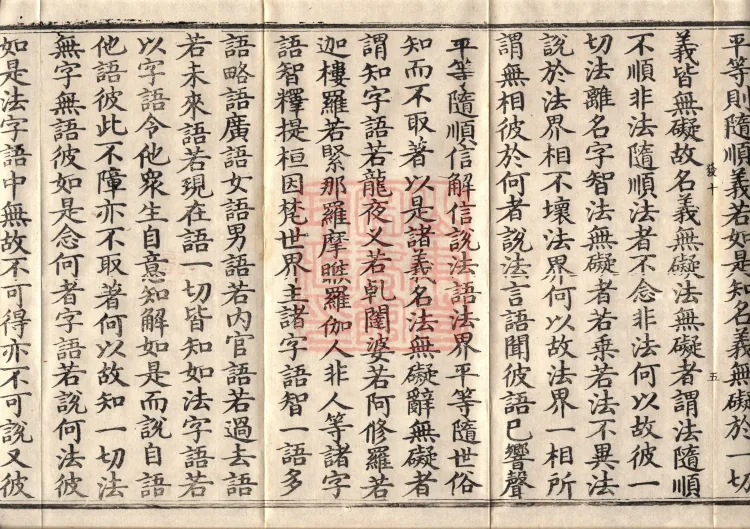 平等則隨順義若如是知名義無礙於一切
義皆無礙故名義無礙法無礙者謂法隨順
發十
五
不順非法隨順法者不念非法何以故彼一
切法離名字智法無礙者若乘若法不異法
說於法界相不壞法界何以故法界一相所
謂無相彼於何者說法言語聞彼語已響聲
平等隨順信解信說法語法界平等隨世俗
知而不取著以是諸義名法無礙辭無礙者
謂知字語若龍夜叉若乹闥婆若阿修羅若
迦樓羅若緊那羅摩睺羅伽人非人等諸字
語智釋提桓因梵世界主諸字語智一語多
語略語廣語女語男語若內官語若過去語
若未來語若現在語一切皆知如法字語若
以字語令他衆生自意知解如是而說自語
他語彼此不障亦不取著何以故知一切法
無字無語彼如是念何者字語若說何法彼
如是法字語中無故不可得亦不可說又彼